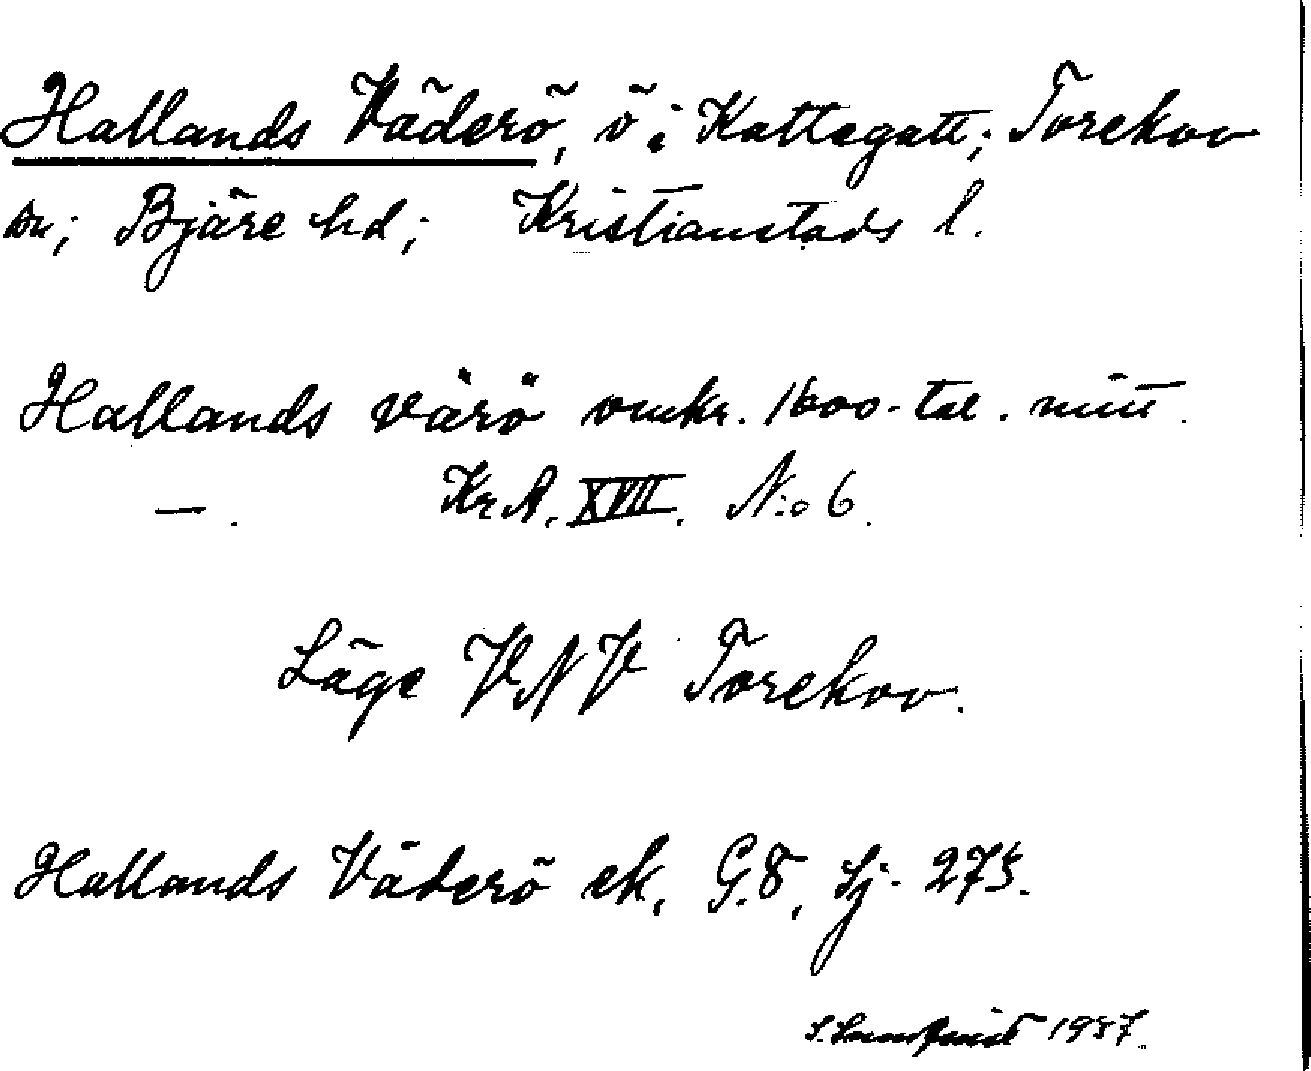 Hallands Väderö, ö i Kattegatt; Torekov
sn; Bjäre hd; Kristianstads l.
Hallands värö omkr. 1600-tal. mitt.
—. KrA. XVII. N:o 6.
Läge VNV Torekov.
Hallands Väderö ek, G.8, Sj. 275.
1937.